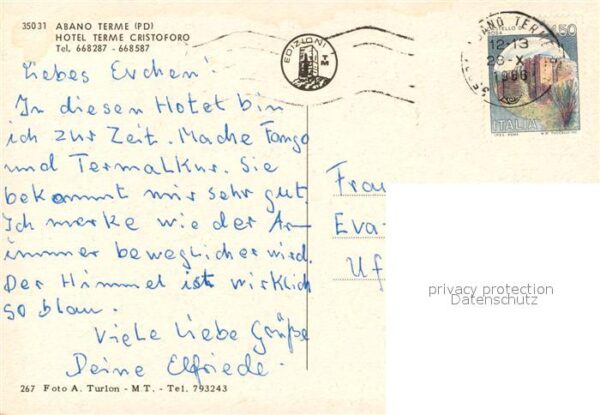 35031 ABANO TERME (PD)
HOTEL TERME CRISTOFORO
Tel. 668287 - 668587
Liebes Evchen!
In diesen Hotel bin
ich zur Zeit. Mache Fango
und Termalkur. Sie
bekommt mir sehr gut.
Ich merke wie der Arm
immer beweglicher wird.
Der Himmel ist wirklich
so blau.
Viele liebe Grüße
Deine Elfriede.
267 Foto A. Turlon - M.T. - Tel. 793243
EDIZIONI
TM
ABANO TERME
12-13
26-X
1986
50
ITALIA
Frau
Eva-
Uf
privacy protection
Datenschutz